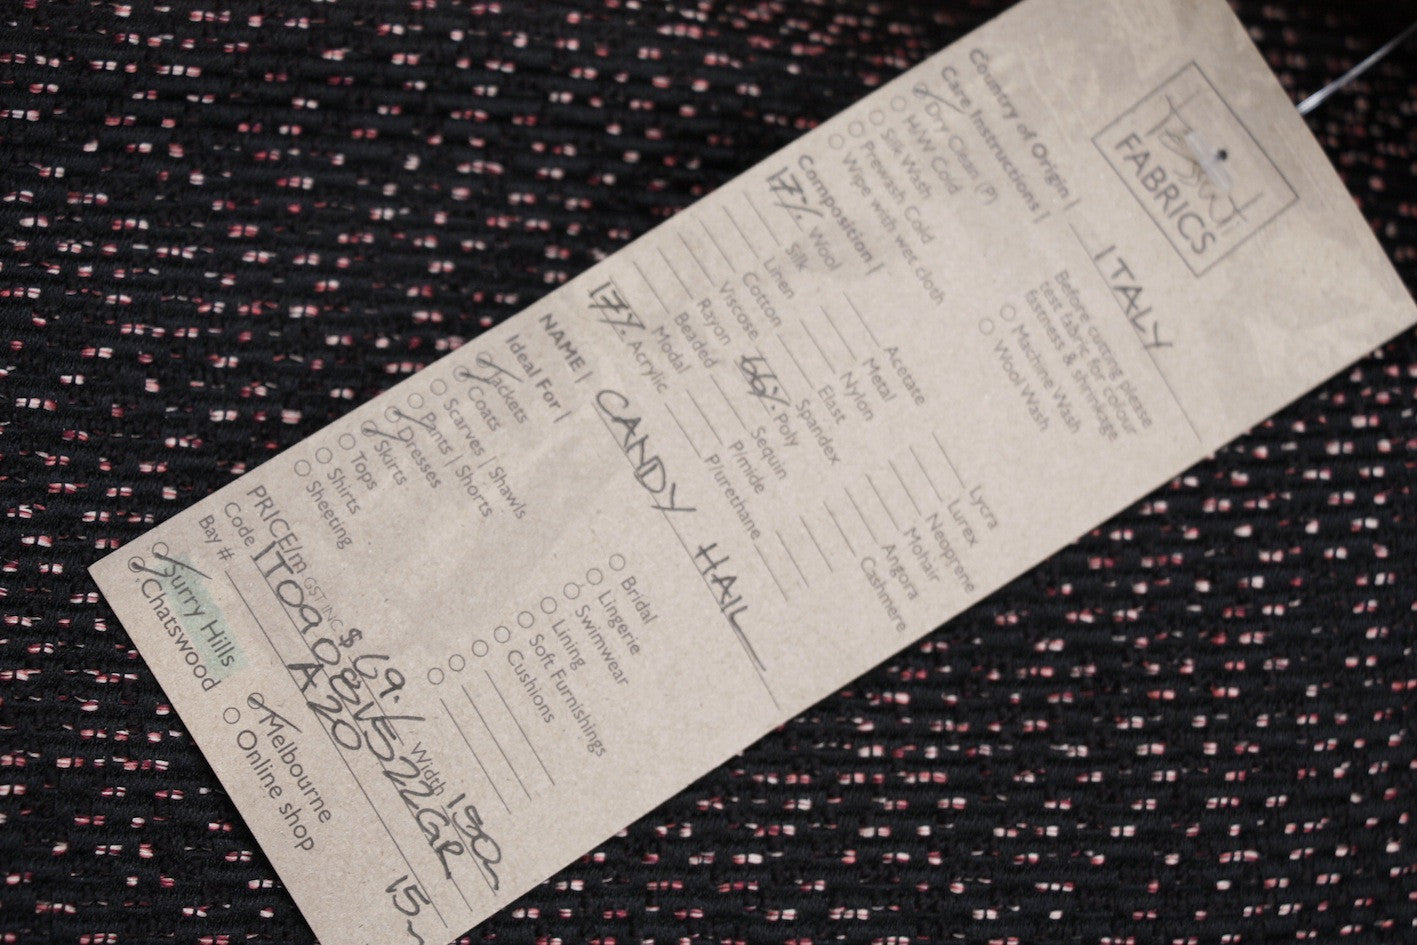 Tessuti
FABRICS
Country of Origin | ITALY
Care Instructions |
Dry Clean (P)
H/W Cold
Silk Wash
Prewash Cold
Wipe with wet cloth
Before cutting please
test fabric for colour
fastness & shrinkage
Machine Wash
Wool Wash
Composition |
17% Wool
Silk
Linen
Cotton
Viscose
Rayon
Beaded
Modal
17% Acrylic
Acetate
Metal
Nylon
Elast
Spandex
66% Poly
Sequin
P/mide
P/urethane
Lycra
Lurex
Neoprene
Mohair
Angora
Cashmere
NAME | CANDY HAIL
Ideal For |
Jackets
Coats
Scarves | Shawls
Pants | Shorts
Dresses
Skirts
Tops
Shirts
Sheeting
Bridal
Lingerie
Swimwear
Lining
Soft Furnishings
Cushions
PRICE/m GST INC $ 69. Width 150
Code
Bay # A20
15m
Surry Hills
Chatswood
Melbourne
Online shop